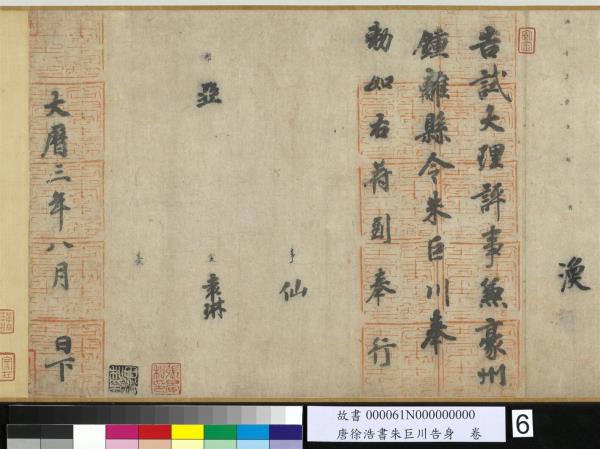 渙
告試大理評事兼豪州
鍾離縣令朱巨川奉
勅如右符到奉行
仙
袁琳
亞
大曆三年八月 日下
故書 000061N000000000
唐徐浩書朱巨川告身 卷
6